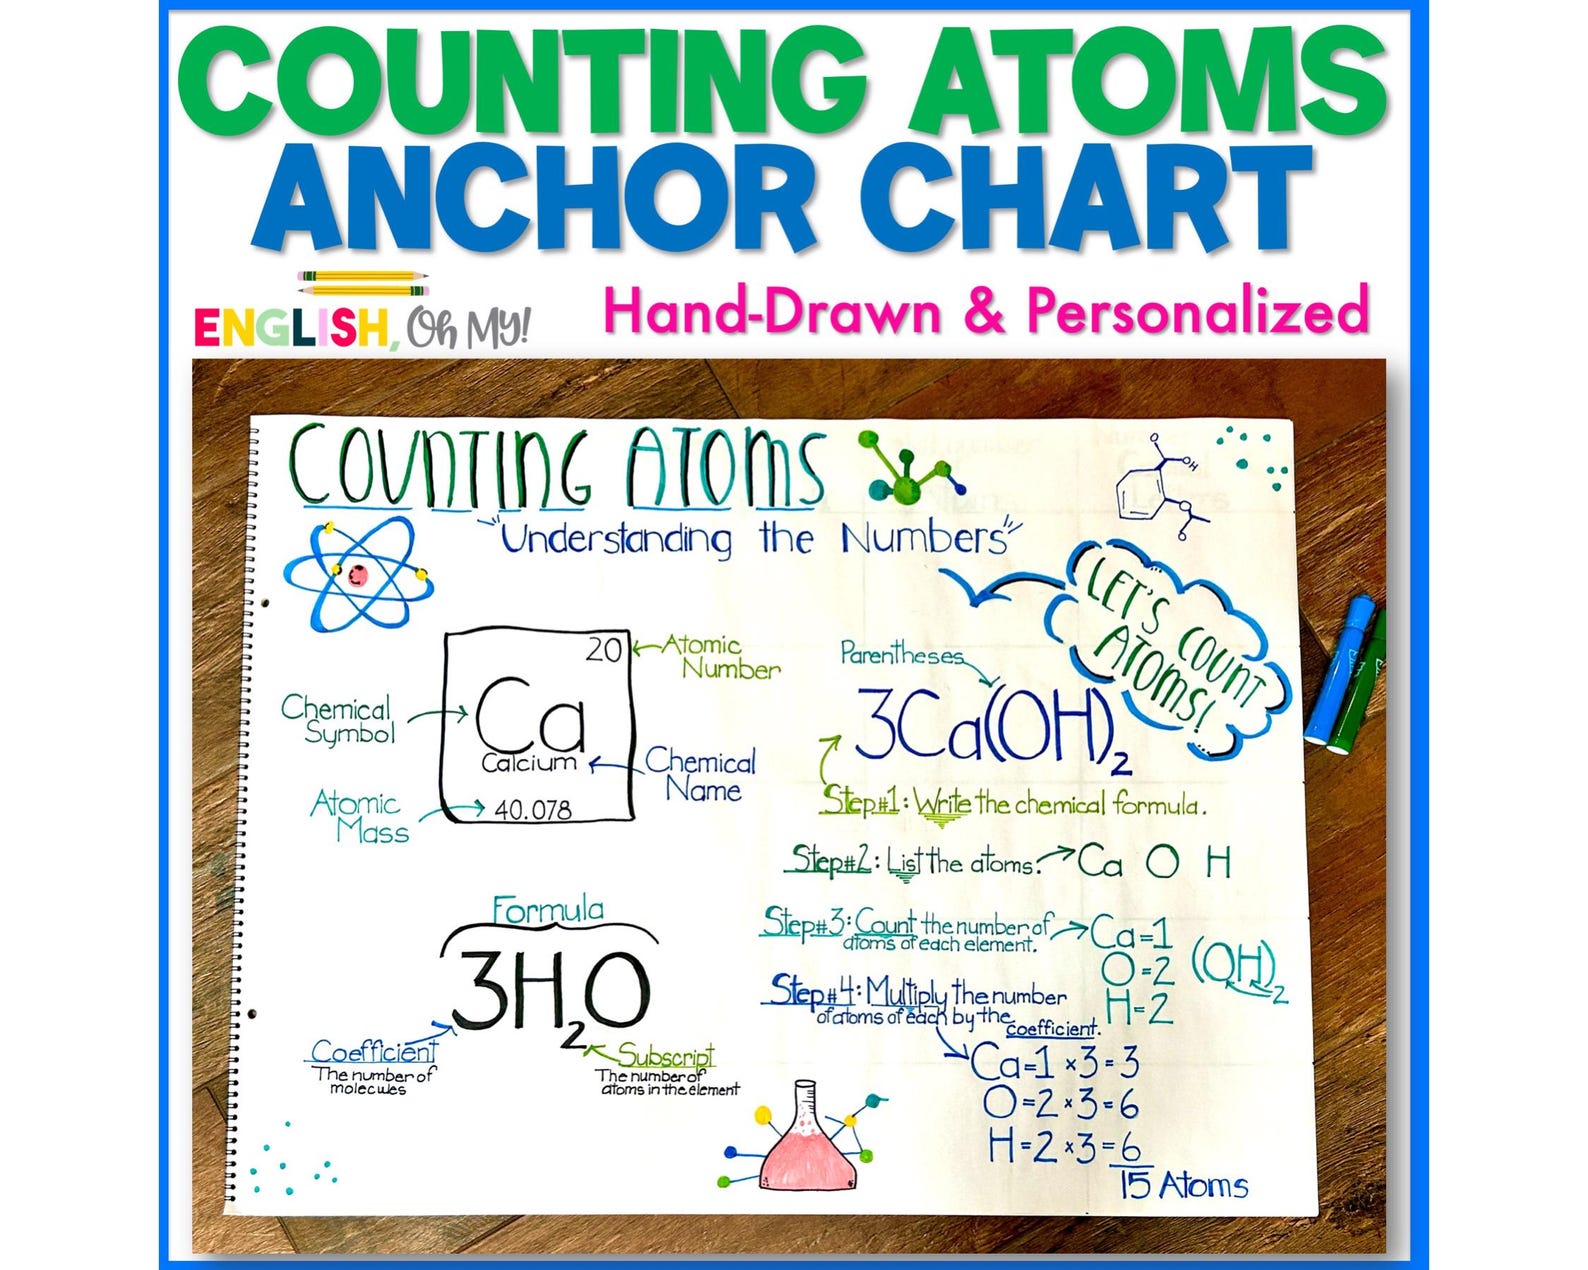 COUNTING ATOMS
ANCHOR CHART
ENGLISH, Oh My!
Hand-Drawn & Personalized
COUNTING ATOMS
"Understanding the Numbers"
LET'S COUNT
ATOMS!
20
Atomic
Number
Chemical
Symbol
Ca
Calcium
Chemical
Name
Atomic
Mass
40.078
Formula
3H₂O
Coefficient
The number of
molecules
Subscript
The number of
atoms in the element
Parentheses
3Ca(OH)₂
Step#1: Write the chemical formula.
Step#2: List the atoms. Ca O H
Step#3: Count the number of
atoms of each element.
Ca=1
O=2
H=2
(OH)₂
Step#4: Multiply the number
of atoms of each by the coefficient.
Ca=1 x3=3
O=2 x3=6
H=2 x3=6
15 Atoms
O
OH
O
O